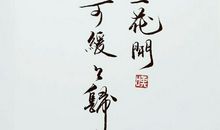 花開
可緩〻歸